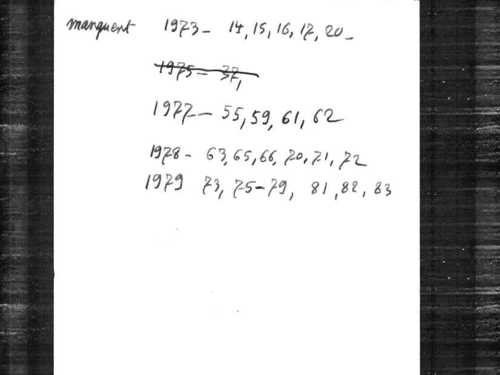 manquent 1973- 14, 15, 16, 17, 20-
1975- 37,
1977- 55, 59, 61, 62
1978- 63, 65, 66, 70, 71, 72
1979 73, 75-79, 81, 82, 83